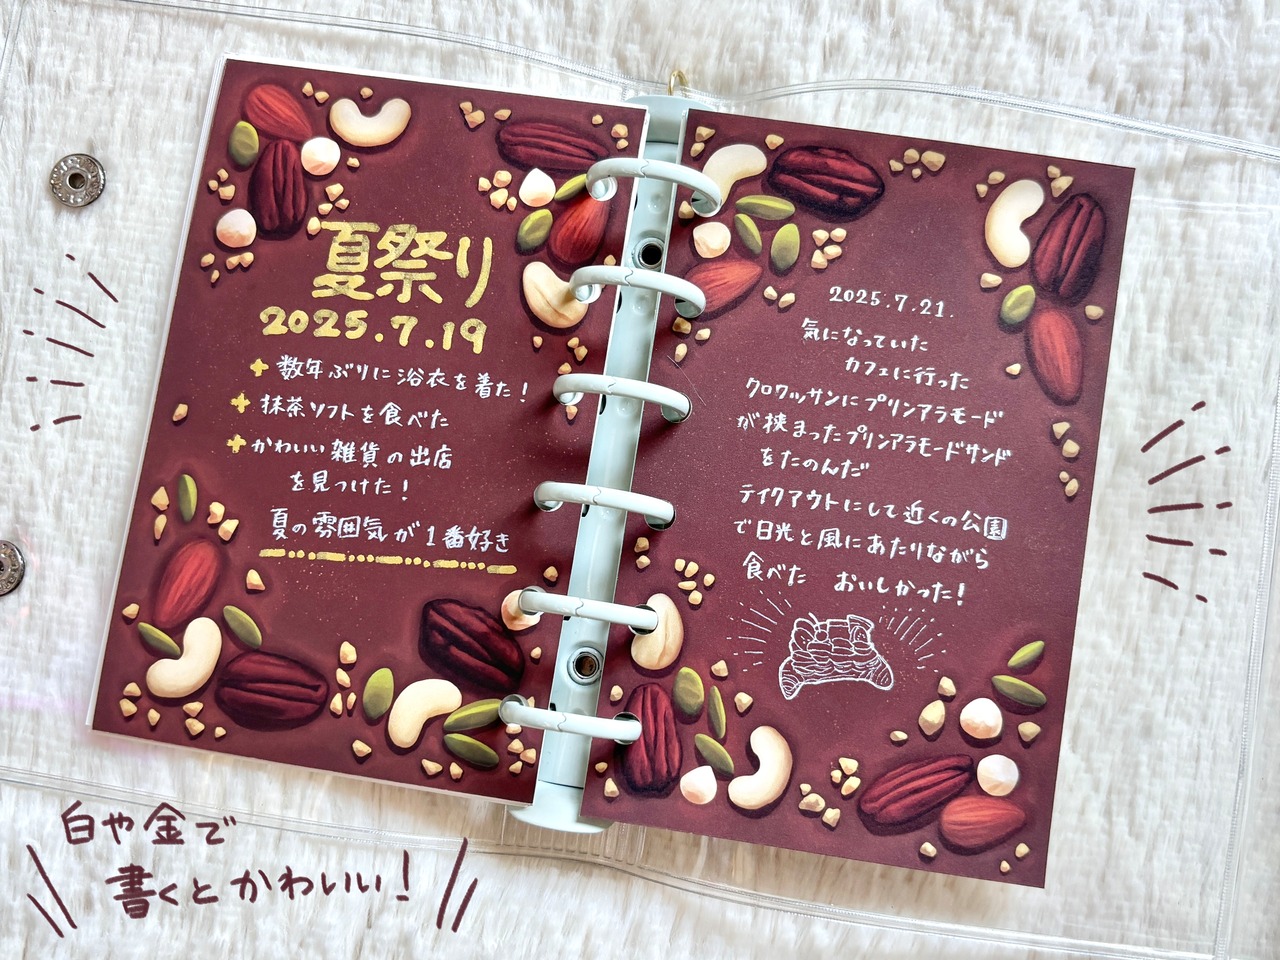 夏祭り
2025.7.19
数年ぶりに浴衣を着た！
抹茶ソフトを食べた
かわいい雑貨の出店
を見つけた！
夏の雰囲気が1番好き
2025.7.21.
気になっていた
カフェに行った
クロワッサンにプリンアラモード
が挟まったプリンアラモードサンド
をたのんだ
テイクアウトにして近くの公園
で日光と風にあたりながら
食べた おいしかった！
白や金で
書くとかわいい！